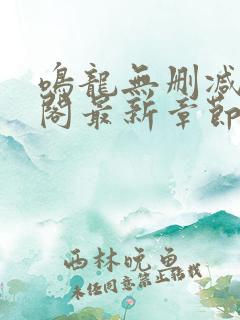 鳴龍無删减
閣最新章節
西林晚鱼
未经同意禁止转载